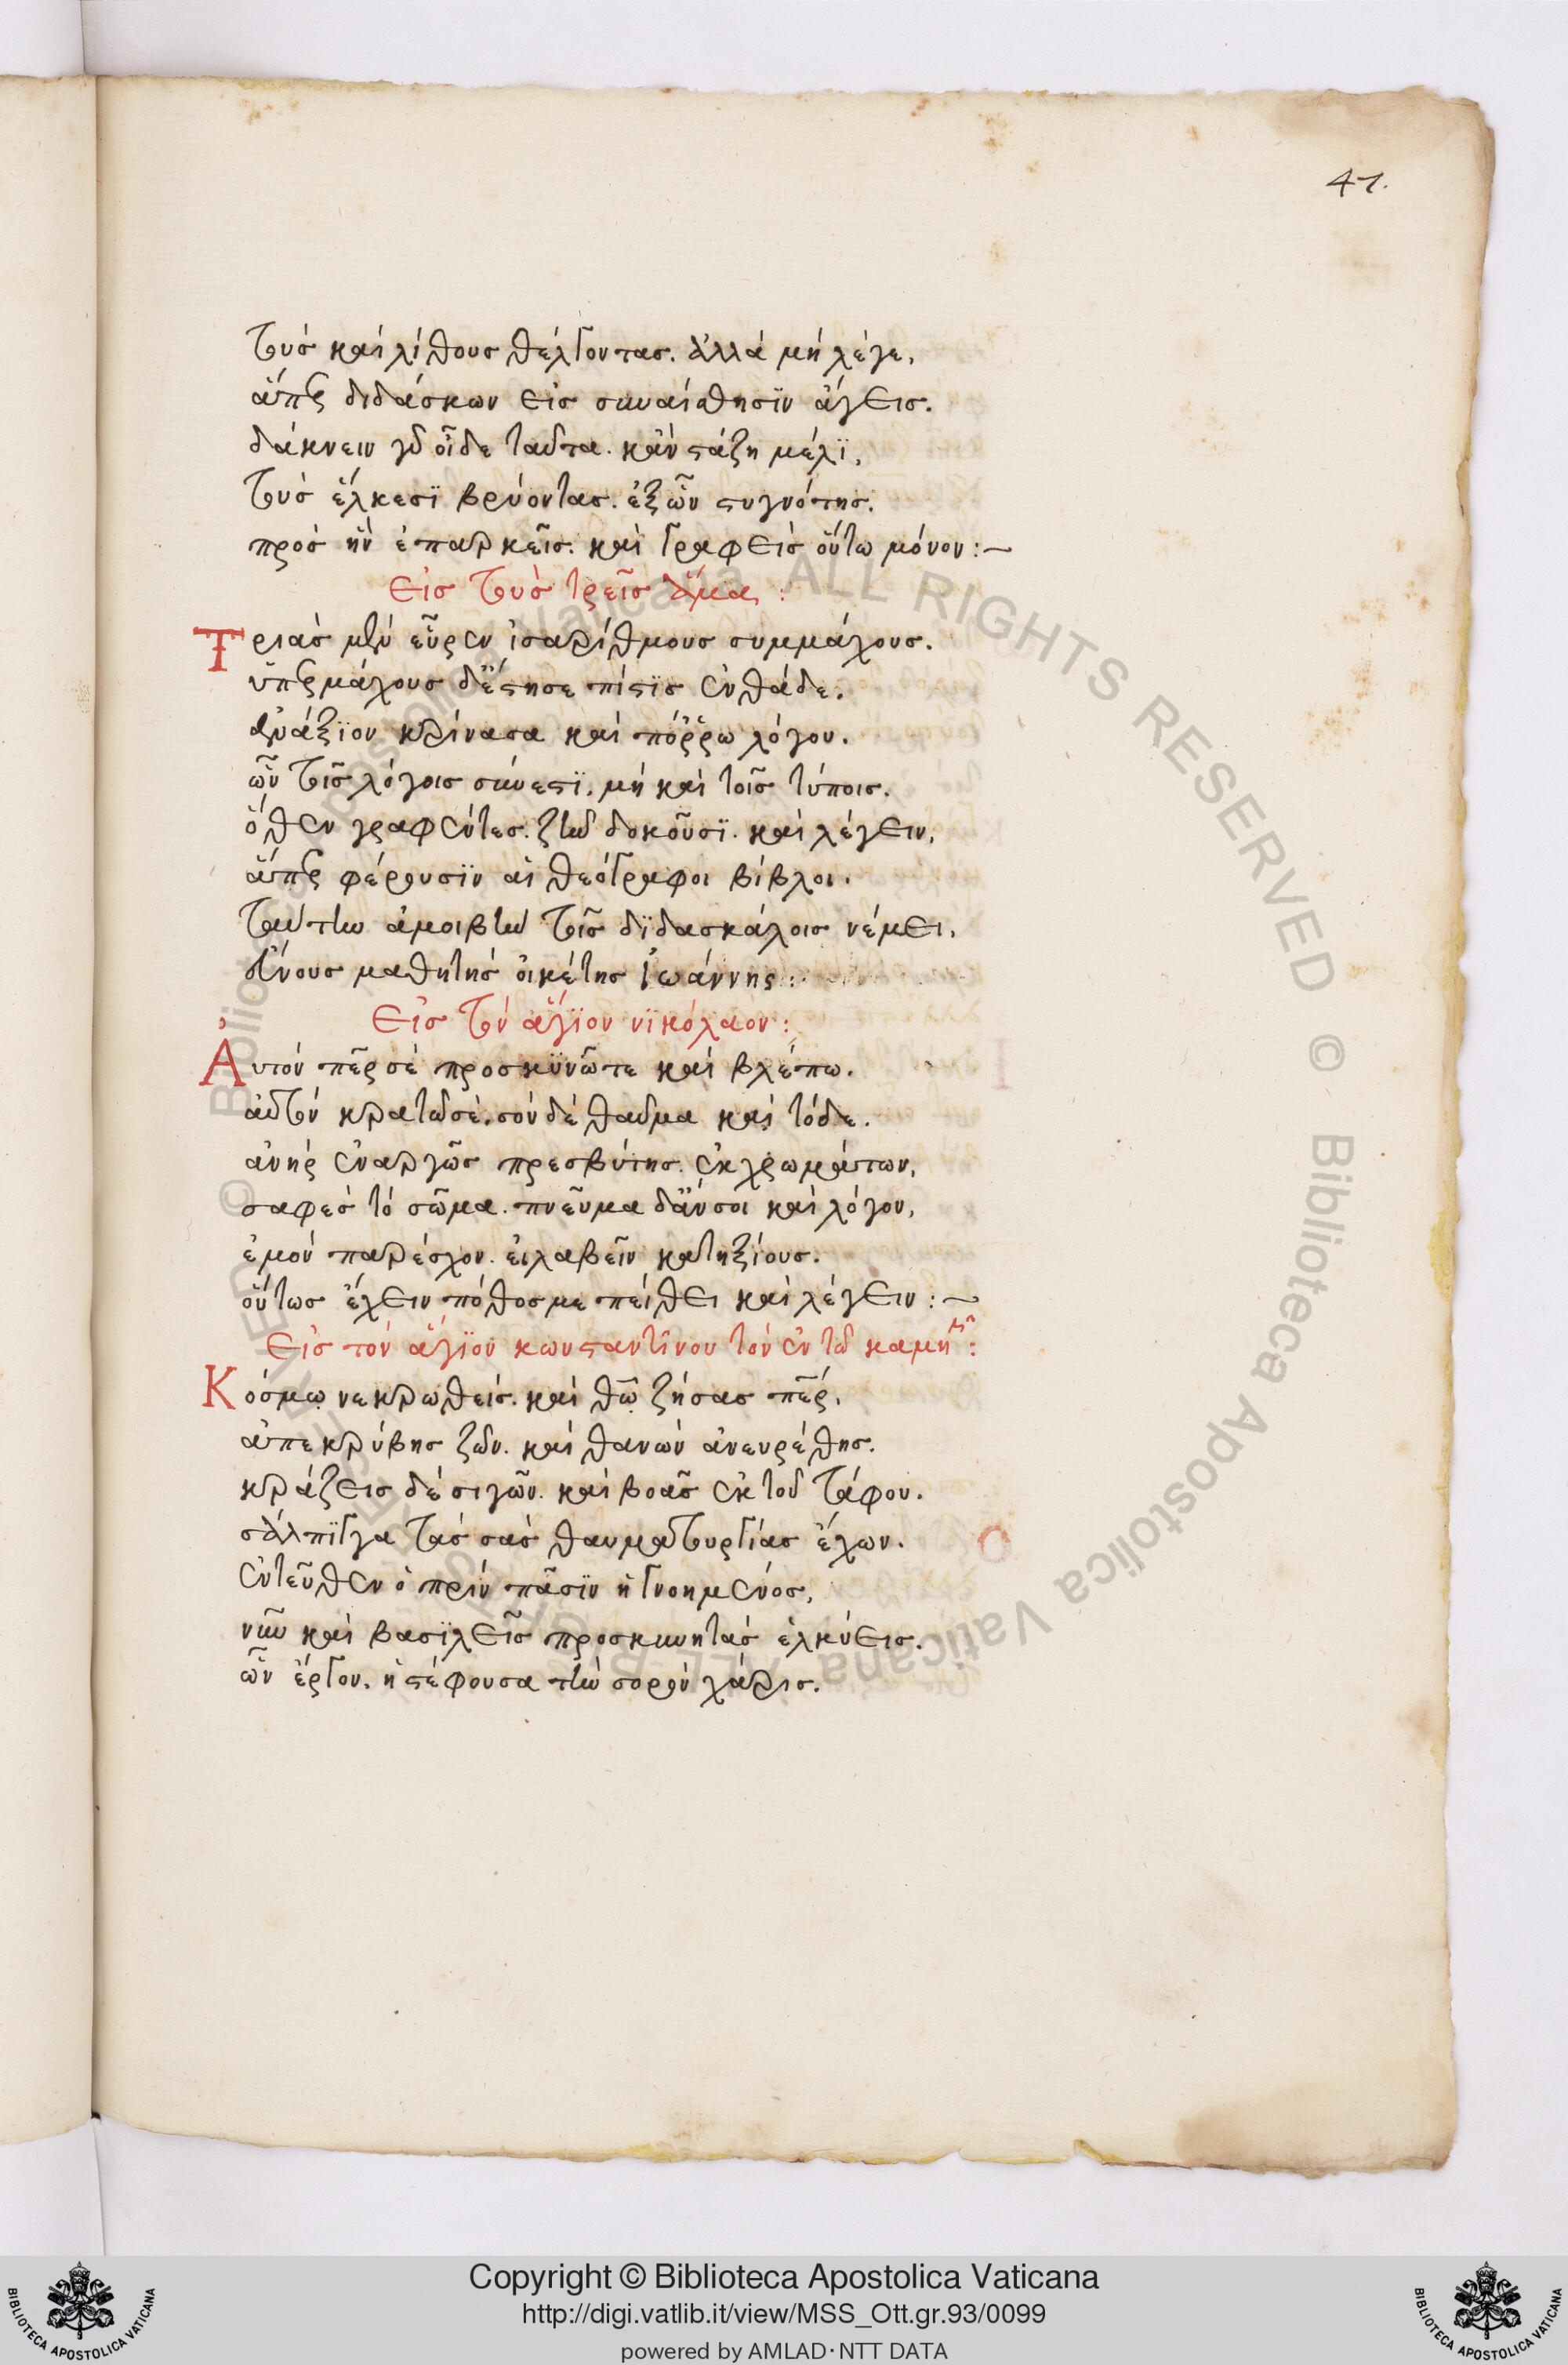 41.
τοὺς καὶ λίθους θέλγοντας. ἀλλὰ μὴ λέγε,
ἅπερ διδάσκων εἰς συναίσθησϊν ἄγεις.
δάκνειν γὰρ οἶδε ταῦτα. κἂν στάζη μέλϊ,
τοὺς ἕλκεσϊ βρύοντας. ἐξ ὧν στυγνότης.
πρὸς ἣν ἐπαρκεῖς. καὶ γραφεὶς οὕτω μόνον:~
εἰς τοὺς τρεῖς ἅμα:
Τριὰς μὲν εὗρεν ἰσαρίθμους συμμάχους.
ὑπερμάχους δ' ἔστησε πίστϊς ἐνθάδε.
ἀνάξϊον κρίνασα καὶ πόῤῥω λόγου.
ὧν τοῖς λόγοις σύνεστϊ, μὴ καὶ τοῖς τύποις.
ὅθεν γραφέντες. ζῆν δοκοῦσϊ. καὶ λέγειν,
ἅπερ φέρουσϊν αἱ θεόγραφοι βίβλοι.
ταύτην ἀμοιβὴν τοῖς δϊδασκάλοις νέμει,
εὔνους μαθητὴς οἰκέτης ἰωάννης:
εἰς τὸν ἅγϊον νϊκόλαον:
Αὐτόν περ σὲ προσκϋνῶ τε καὶ βλέπω.
αὐτὸν κρατῶ σὲ. σὸν δὲ θαῦμα καὶ τόδε.
ἀνὴρ ἐναργῶς πρεσβύτης. ἐκ χρωμάτων,
σαφὲς τὸ σῶμα. πνεῦμα δ' ἄν σοι καὶ λόγον,
ἐμὸν παρέσχον. εἰ λαβεῖν κατηξίους.
οὕτως ἔχειν πόθος με πείθει καὶ λέγειν:~
εἰς τὸν ἅγϊον κωνσταντῖνον τὸν ἐν τῶ καμη
Κόσμῳ νεκρωθεὶς. καὶ θῶ ζήσας περ,
ἀπεκρύβης ζῶν. καὶ θανὼν ἀνευρέθης.
κράζεις δὲ σιγῶν. καὶ βοᾶς ἐκ τοῦ τάφου.
σάλπϊγγα τὰς σὰς θαυματουργίας ἔχων.
ἐντεῦθεν ὁ πρὶν πᾶσϊν ἠγνοημένος,
νῦν καὶ βασϊλεῖς προσκυνητὰς ἑλκύεις.
ὧν ἔργον, ἡ στέφουσα τὴν σορὸν χάρις.
Copyright © Biblioteca Apostolica Vaticana
http://digi.vatlib.it/view/MSS_Ott.gr.93/0099
powered by AMLAD·NTT DATA